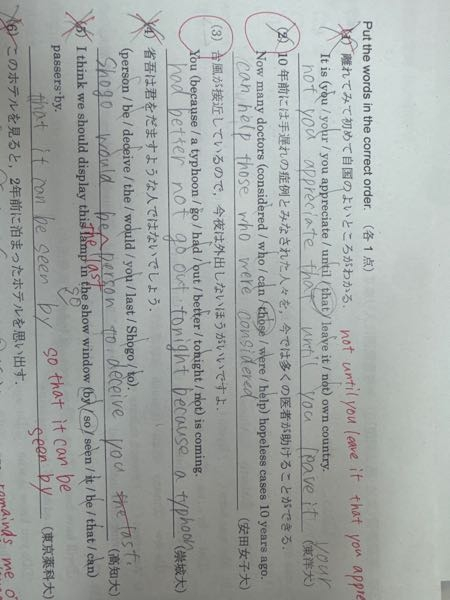 Put the words in the correct order. (各1点)
(1) 離れてみて初めて自国のよいところがわかる。
not until you leave it that you appre
It is (you / your / you appreciate / until / that / leave it / not) own country.
not you appreciate that until you leave it your (東洋大)
(2) 10年前には手遅れの症例とみなされた人々を，今では多くの医者が助けることができる。
Now many doctors (considered / who / can / those / were / help) hopeless cases 10 years ago.
can help those who were considered (安田女子大)
(3) 台風が接近しているので，今夜は外出しないほうがいいですよ。
You (because / a typhoon / go / had / out / better / tonight / not) is coming.
had better not go out tonight because a typhoon (崇城大)
(4) 省吾は君をだますような人ではないでしょう。
(person / be / deceive / the / would / you / last / Shogo / to).
Shogo would be person to deceive you the last. (高知大)
the last
(5) I think we should display this lamp in the show window (by / so / seen / it / be / that / can)
passers-by.
so
that it can be seen by so that it can be
seen by (東京薬科大)
(6) このホテルを見ると，2年前に泊まったホテルを思い出す。
remainds me o